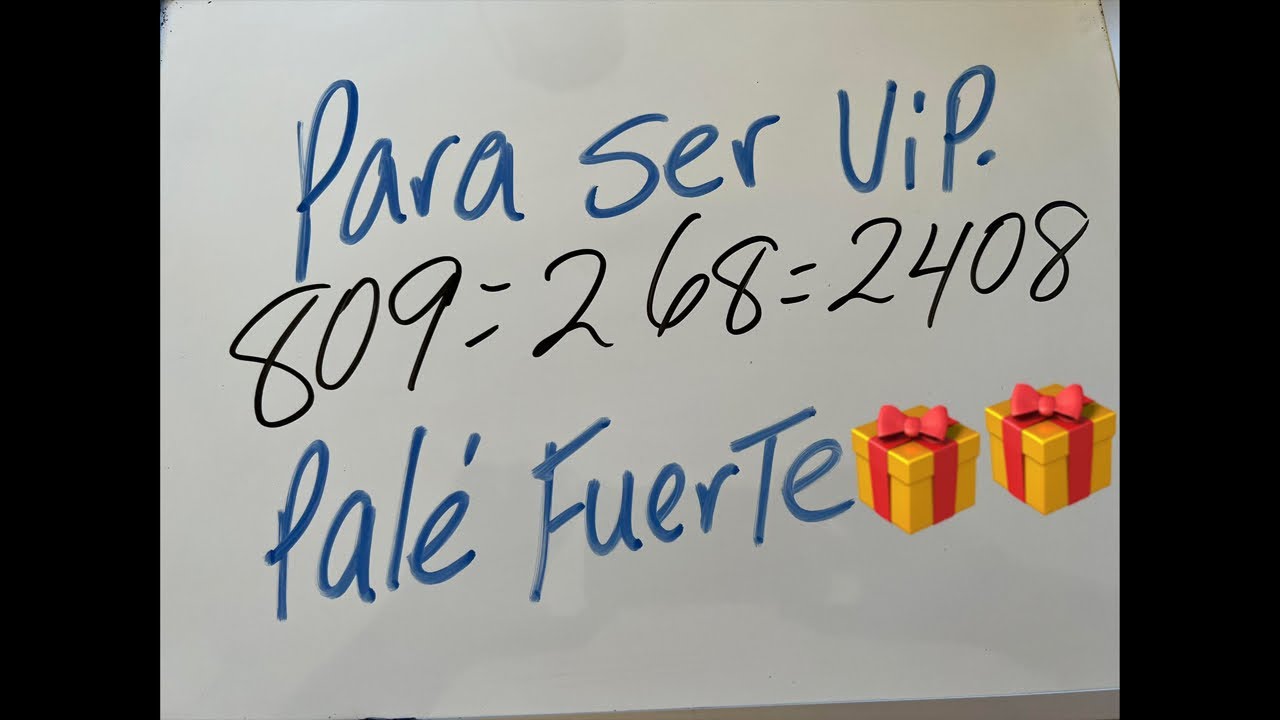 Para ser ViP.
809=268=2408
Palé FuerTe